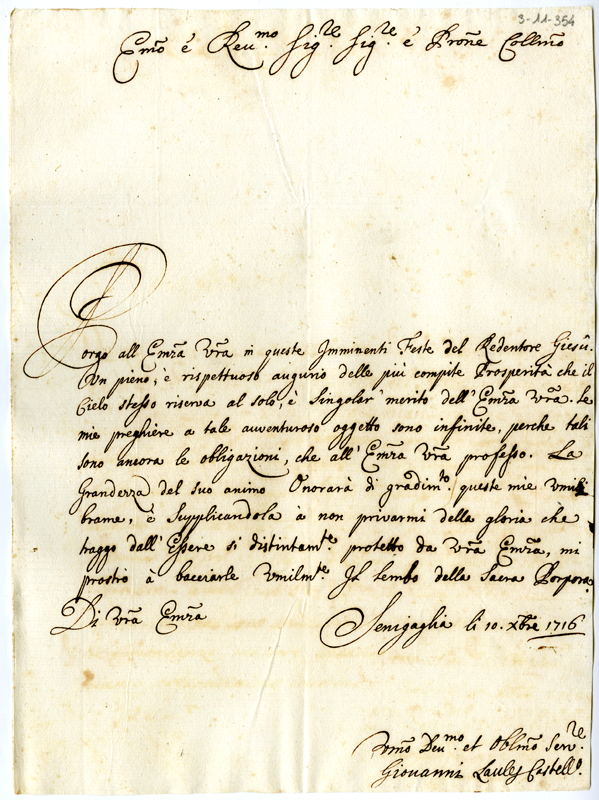 3-11-354
Em̃o è Reu.mo Sig.re Sig.re è Prõne Collm̃o
Porgo all Em̃za Vr̃a in queste Imminenti Feste del Redentore Giesù.
Vn pieno, è rispettuoso augurio delle più compite Prosperità che il
Cielo stesso riserva al solo, è Singolar' merito dell'Em̃za Vr̃a. Le
mie preghiere a tale auuenturoso oggetto sono infinite, perche tali
sono ancora le obligazioni, che all'Em̃za Vr̃a professo. La
Grandezza del suo animo Onorarà di gradim.to queste mie Vmili
brame, è Supplicandola à non priuarmi della gloria che
traggo dall'Essere si distintam.te protetto da Vr̃a Em̃za, mi
prostro à bacciarle Vmilm.te Il Lembo della Sacra Porpora
Di Vr̃a Em̃za
Senigaglia li 10. Xbr̃e 1716
Deu.mo et Oblm̃o Ser.re
Giovanni Castell.o